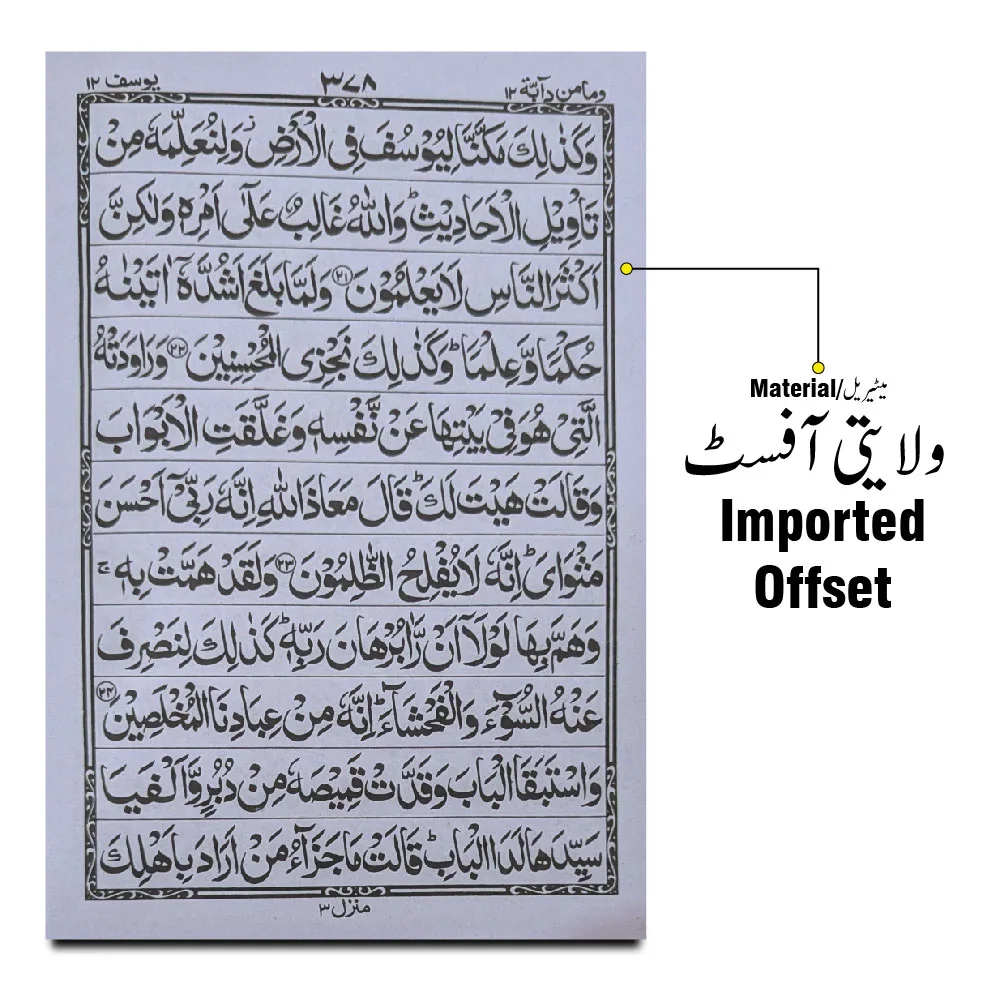 وما من دآبة ١٢
٣٧٨
يوسف ١٢
وَكَذٰلِكَ مَكَّنَّا لِيُوْسُفَ فِى الْاَرْضِ ز وَلِنُعَلِّمَهٗ مِنْ
تَاْوِيْلِ الْاَحَادِيْثِ ؕ وَاللّٰهُ غَالِبٌ عَلٰٓى اَمْرِهٖ وَلٰكِنَّ
اَكْثَرَ النَّاسِ لَا يَعْلَمُوْنَ ٢١ وَلَمَّا بَلَغَ اَشُدَّهٗٓ اٰتَيْنٰهُ
حُكْمًا وَّعِلْمًا ؕ وَكَذٰلِكَ نَجْزِى الْمُحْسِنِيْنَ ٢٢ وَرَاوَدَتْهُ
الَّتِىْ هُوَ فِىْ بَيْتِهَا عَنْ نَّفْسِهٖ وَغَلَّقَتِ الْاَبْوَابَ
وَقَالَتْ هَيْتَ لَكَ ؕ قَالَ مَعَاذَ اللّٰهِ اِنَّهٗ رَبِّىْٓ اَحْسَنَ
مَثْوَاىَ ؕ اِنَّهٗ لَا يُفْلِحُ الظّٰلِمُوْنَ ٢٣ وَلَقَدْ هَمَّتْ بِهٖ ج
وَهَمَّ بِهَا لَوْلَآ اَنْ رَّاٰ بُرْهَانَ رَبِّهٖ ؕ كَذٰلِكَ لِنَصْرِفَ
عَنْهُ السُّوْٓءَ وَالْفَحْشَآءَ ؕ اِنَّهٗ مِنْ عِبَادِنَا الْمُخْلَصِيْنَ ٢٤
وَاسْتَبَقَا الْبَابَ وَقَدَّتْ قَمِيْصَهٗ مِنْ دُبُرٍ وَّاَلْفَيَا
سَيِّدَهَا لَدَا الْبَابِ ؕ قَالَتْ مَا جَزَآءُ مَنْ اَرَادَ بِاَهْلِكَ
منزل ٣
Material/میٹیریل
ولایتی آفسٹ
Imported
Offset